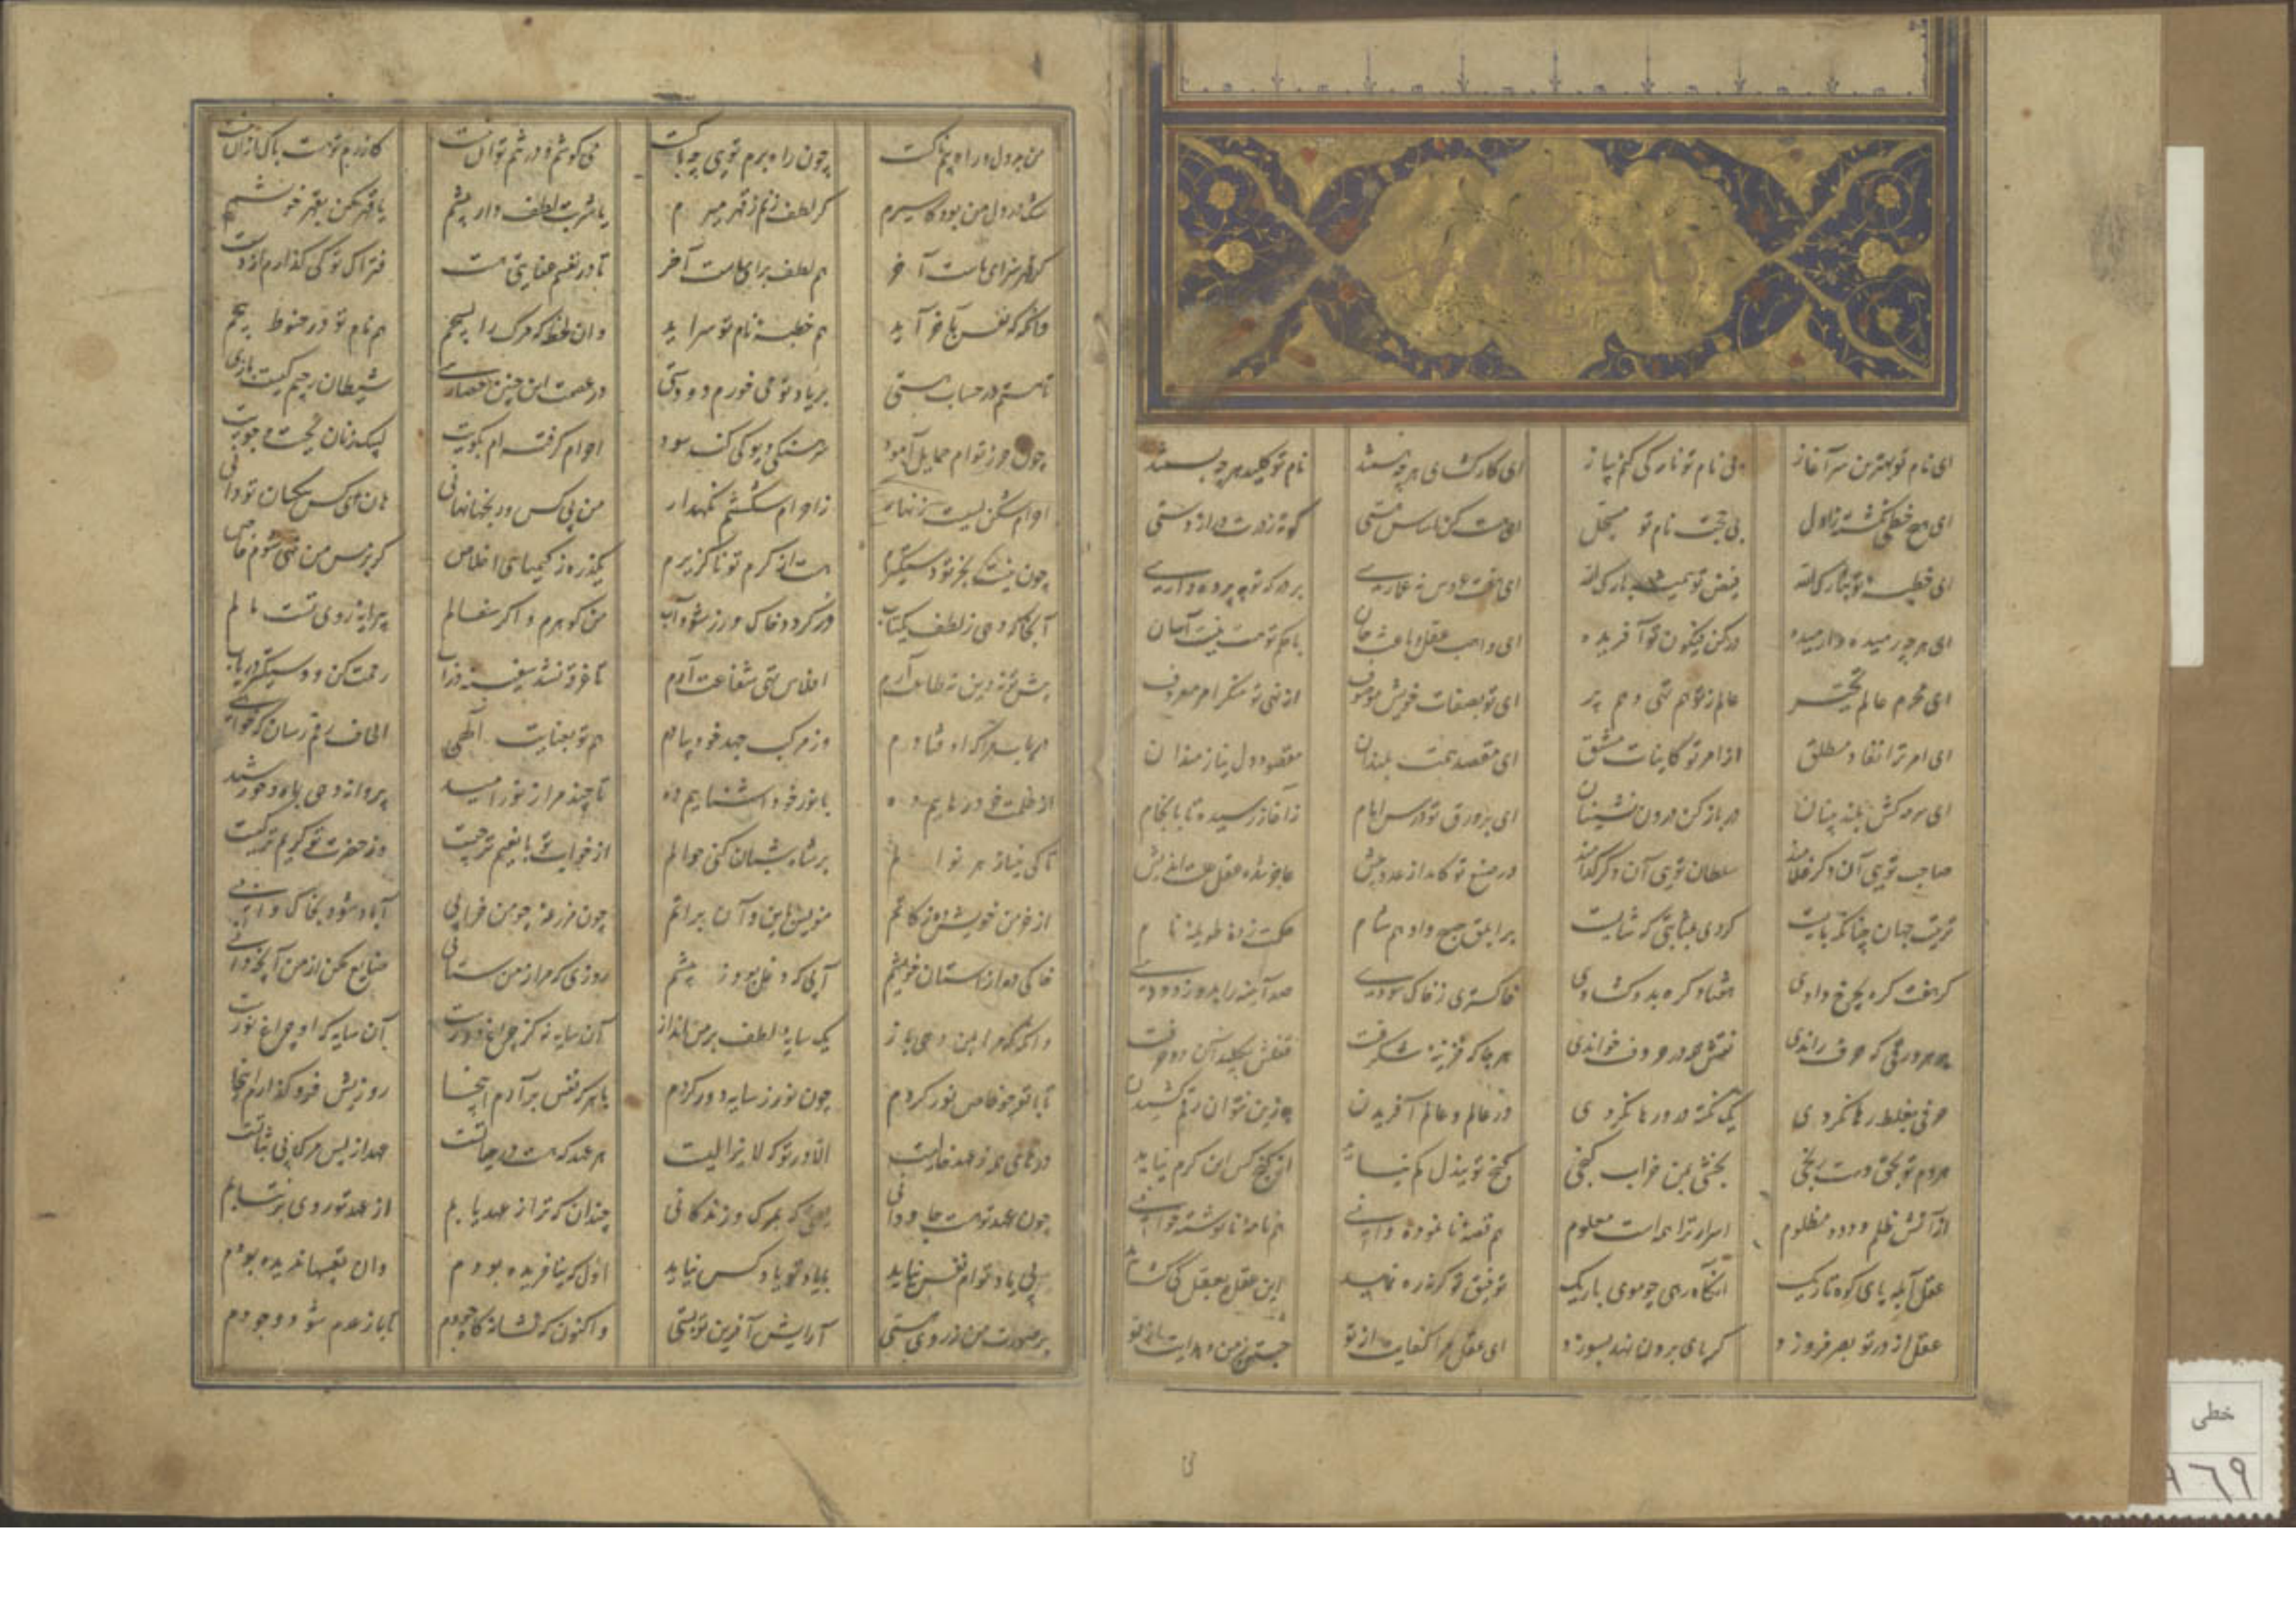 ای نام تو بهترین سرآغاز بی نام تو نامه کی کنم باز ای کارگشای هرچه هستند نام تو کلید هرچه بستند
ای هیچ خطی نگشته ز اول بی حجت نام تو مسجل ای هست کن اساس هستی کوته ز درت دراز دستی
ای خطبه تو تبارک الله فیض تو همیشه بارک الله ای هفت عروس نه عماری بر درگه تو به پرده داری
ای هرچه رمیده وارمیده در کن فیکون تو آفریده ای واهب عقل و باعث جان با حکم تو هست و نیست آسان
ای محرم عالم تحیر عالم ز تو هم تهی و هم پر ای تو بصفات خویش موصوف از نهی تو منکر امر معروف
ای امر ترا نفاذ مطلق از امر تو کاینات مشتق ای مقصد همت بلندان مقصود دل نیازمندان
ای سرمه کش بلند بینان در باز کن درون نشینان ای بر ورق تو درس ایام ز آغاز رسیده تا بانجام
صاحب تویی آن دگر غلامند سلطان تویی آن دگر کدامند در صنع تو کامد از عدد بیش عاجز شده عقل علت اندیش
ترتیب جهان چنانکه بایست کردی بمثابتی که شایست بر ابلق صبح و ادهم شام حکمت زده طویله
گر هفت گره بچرخ دادی هفتاد گره بدو گشادی خاکستری ز خاک سودی صد آینه را بدو زدودی
بر هر ورقی که حرف راندی نقش همه در دو حرف خواندی هر جا که خزینه شگرفت قفلش بکلید آن دو حرفت
حرفی بغلط رها نکردی یک نکته درو رها نکردی در عالم و عالم آفریدن به زین نتوان رقم کشیدن
هر دم تو بحق دست رنجی بخشی بمن خراب گنجی گنج تو ببذل کم نیاید از گنج کس این کرم نیاید
از آتش ظلم و دود مظلوم اسرار ترا همه است معلوم هم قصه نانموده دانی هم نامه نانوشته خوانی
عقل آبله پای کوه تاریک آنگاه رهی چو موی باریک توفیق تو گر نه ره نماید این عقده بعقل کی گشاید
عقل از در تو بصر فروزد گر پای برون نهد بسوزد ای عقل مرا کفایت از تو جستن ز من و هدایت از تو
من بددل و راه بیمناکست چون راه برم تویی چه باکست می کوشم و در تنم توان نیست کازرم تو هست باک از آن نیست
شک در دل من بود کاسیرم گر لطف کنم ز قهر میرم یا شربت لطف دار پیشم یا قهر مکن بقهر خویشم
گر قهر سزای ماست آخر هم لطف برای ماست آخر تا در نفسم عنایتی هست فتراک تو کی گذارم از دست
وانگه که نفس بآخر آید هم خطبه نام تو سراید وان لحظه که مرگ را بسیجم هم نام تو در حنوط پیچم
تا هستم در حساب هستی بر یاد تو می خورم دو دستی در عصمت این چنین حصاری شیطان رجیم کیست باری
چون حرز توام حمایل آمود سرهنگی دیو کی کند سود احرام گرفته ام بکویت لبیک زنان بجست و جویت
احرام شکن بسیست زنهار ز احرام شکستنم نگهدار من بی کس و رخنها نهانی هان ای کس بیکسان تو دانی
چون نیست بجز تو دستگیرم هست از کرم تو ناگزیرم یک ذره ز کیمیای اخلاص گر بر مس من نهی شوم خاص
آنجا که دهی ز لطف یکتاب زر گردد خاک و در شود آب من گوهرم و اگر سفالم پیرایه روی تست مالم
پیش تو نه دین نه طاعت آرم افلاس تهی شفاعت آرم تا غرقه نشد سفینه در آب رحمت کن و دستگیر و دریاب
بردار مرا که اوفتادم وز مرکب جهد خود پیادم هم تو بعنایت الهی رقم رسان که خواهی
از ظلمت خود رهاییم ده با نور خود آشناییم ده تا چند مرا ز نور امید پروانه دهی بماه و خورشید
تا کی بنیاز هر نوالم بر شاه و شبان کنی حوالم از خوان تو با نعیم تر چیست وز حضرت تو کریم تر کیست
از خرمن خویش ده زکاتم منویس باین و آن براتم چون مزرعه چو من خرابی آباد شود بخاک و آبی
خاکی ده از آستان خویشم آبی که دغل برد ز پیشم روزی که مرا ز من ستانی ضایع مکن از من آنچه دانی
وانگه که مرا بمن دهی باز یک سایه لطف بر من انداز آن سایه نه کز چراغ دورست آن سایه که او چراغ نورست
تا با تو چو خاص نور گردم چون نور ز سایه دور گردم با هر که نفس برآرم اینجا روزیش فرو گذارم اینجا
درهای همه ز عهد خالیست الا در تو که لایزالیست هر عهد که هست در حیاتست عهد از پس مرگ بی ثباتست
چون عهد تو هست جاودانی یعنی که بمرگ و زندگانی چندان که قرار عهد یابم از عهد تو روی برنتابم
بی یاد توام نفس نیاید با یاد تو یاد کس نیاید اول که نیافریده بودم وان تعبیها ندیده بودم
بر صورت من ز روی هستی آرایش آفرین تو بستی واکنون که نشانه گاه جودم تا باز عدم شود وجودم
خطی